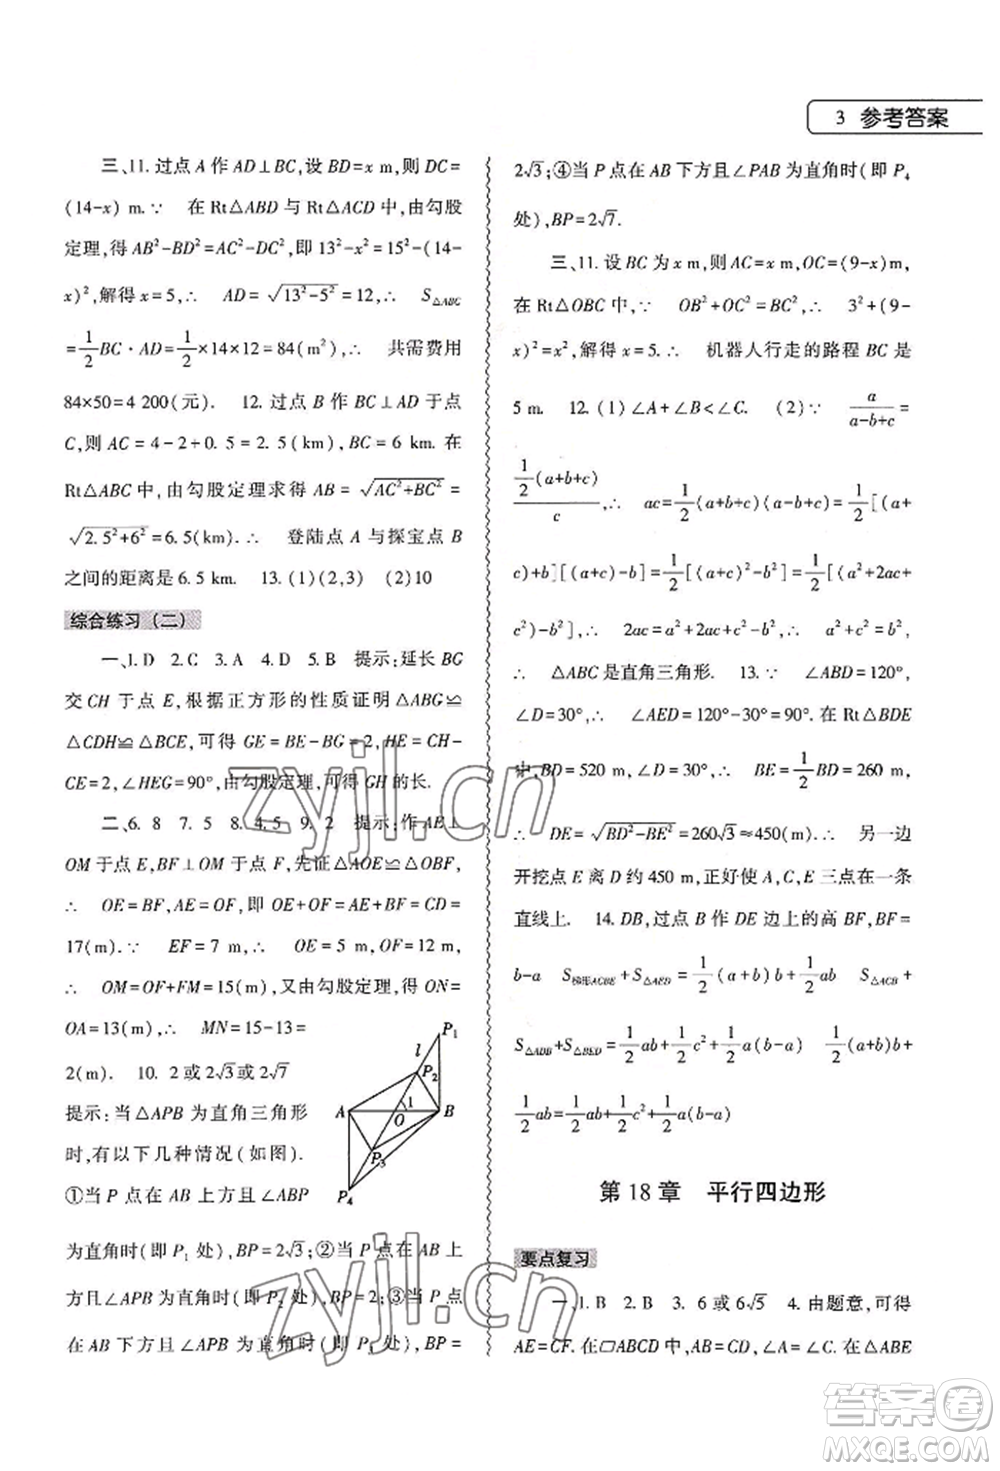 3 参考答案
三、11. 过点 A 作 AD⊥BC,设 BD=x m,则 DC=
(14-x) m.∵ 在 Rt△ABD 与 Rt△ACD 中,由勾股
定理,得 AB²-BD²=AC²-DC²,即 13²-x²=15²-(14-
x)²,解得 x=5,∴ AD=√(13²-5²)=12,∴ S△ABC
=1/2 BC·AD=1/2×14×12=84(m²),∴ 共需费用
84×50=4 200(元). 12. 过点 B 作 BC⊥AD 于点
C,则 AC=4-2+0.5=2.5(km),BC=6 km. 在
Rt△ABC 中,由勾股定理求得 AB=√(AC²+BC²)=
√(2.5²+6²)=6.5(km).∴ 登陆点 A 与探宝点 B
之间的距离是 6.5 km. 13. (1)(2,3) (2)10
综合练习(二)
一、1. D 2. C 3. A 4. D 5. B 提示:延长 BG
交 CH 于点 E,根据正方形的性质证明△ABG≌
△CDH≌△BCE,可得 GE=BE-BG=2,HE=CH-
CE=2,∠HEG=90°,由勾股定理,可得 GH 的长.
二、6. 8 7. 5 8. 4.5 9. 2 提示:作 AE⊥
OM 于点 E,BF⊥OM 于点 F,先证△AOE≌△OBF,
∴ OE=BF,AE=OF,即 OE+OF=AE+BF=CD=
17(m).∵ EF=7 m,∴ OE=5 m,OF=12 m,
∴ OM=OF+FM=15(m),又由勾股定理,得 ON=
OA=13(m),∴ MN=15-13=
2(m). 10. 2或2√3或2√7
提示:当△APB 为直角三角形
时,有以下几种情况(如图).
①当 P 点在 AB 上方且∠ABP
P₁
l
P₂
A
1
B
O
P₃
P₄
为直角时(即 P₁ 处),BP=2√3;②当 P 点在 AB 上
方且∠APB 为直角时(即 P₂ 处),BP=2;③当 P 点
在 AB 下方且∠APB 为直角时(即 P₃ 处),BP=
2√3;④当 P 点在 AB 下方且∠PAB 为直角时(即 P₄
处),BP=2√7.
三、11. 设 BC 为 x m,则 AC=x m,OC=(9-x)m,
在 Rt△OBC 中,∵ OB²+OC²=BC²,∴ 3²+(9-
x)²=x²,解得 x=5.∴ 机器人行走的路程 BC 是
5 m. 12. (1)∠A+∠B<∠C. (2)∵ a/(a-b+c)=
(1/2(a+b+c))/c,∴ ac=1/2(a+b+c)(a-b+c)=1/2[(a+
c)+b][(a+c)-b]=1/2[(a+c)²-b²]=1/2[(a²+2ac+
c²)-b²],∴ 2ac=a²+2ac+c²-b²,∴ a²+c²=b²,
∴ △ABC 是直角三角形. 13. ∵ ∠ABD=120°,
∠D=30°,∴ ∠AED=120°-30°=90°. 在 Rt△BDE
中,BD=520 m,∠D=30°,∴ BE=1/2 BD=260 m,
∴ DE=√(BD²-BE²)=260√3≈450(m).∴ 另一边
开挖点 E 离 D 约 450 m,正好使 A,C,E 三点在一条
直线上. 14. DB,过点 B 作 DE 边上的高 BF,BF=
b-a S梯形ACBE+S△AED=1/2(a+b)b+1/2ab S△ACB+
S△ADB+S△BED=1/2ab+1/2c²+1/2a(b-a) 1/2(a+b)b+
1/2ab=1/2ab+1/2c²+1/2a(b-a)
第 18 章 平行四边形
要点复习
一、1. B 2. B 3. 6或6√5 4. 由题意,可得
AE=CF. 在▱ABCD 中,AB=CD,∠A=∠C. 在△ABE
zyjl.cn
zyjl.cn
答案圈
MXQE.COM